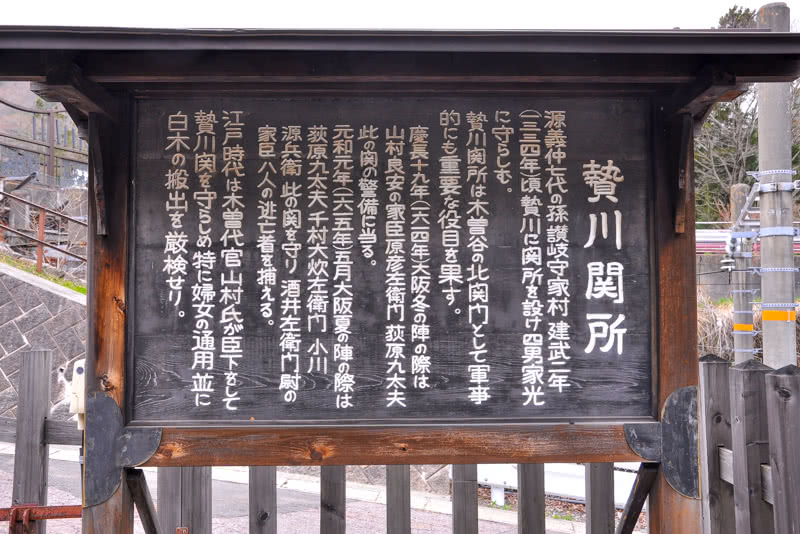 贄川関所
源義仲七代の孫讃岐守家村 建武二年
(一三三四年)頃 贄川に関所を設け 四男家光
に守らしむ。
贄川関所は木曽谷の北関門として軍事
的にも重要な役目を果す。
慶長十九年(一六一四年)大阪冬の陣の際は
山村良安の家臣原彦左衛門 荻原九太夫
此の関の警備に当る。
元和元年(一六一五年)五月大阪夏の陣の際は
荻原九太夫 千村大炊左衛門 小川
源兵衛 此の関を守り 酒井左衛門尉の
家臣八人の逃亡者を捕える。
江戸時代は木曽代官山村氏が臣下をして
贄川関を守らしめ特に婦女の通用並に
白木の搬出を厳検せり。